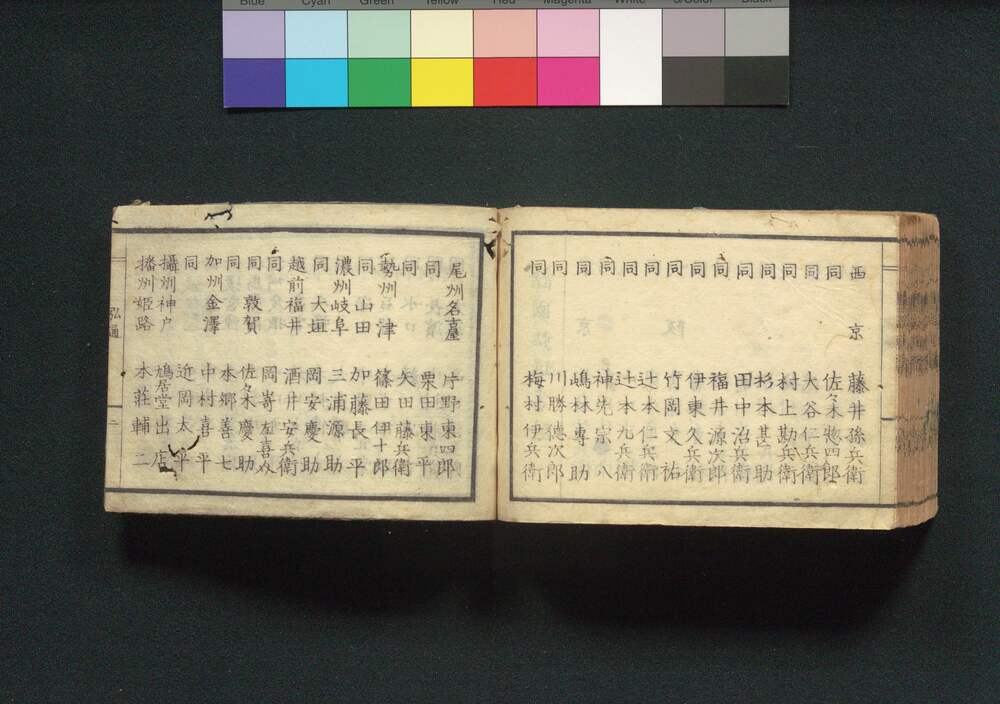 Blue Cyan Green Yellow Red Magenta White 3/Color Black
西京 藤井孫兵衛
同 佐々木惣四郎
同 大谷仁兵衛
同 村上勘兵衛
同 杉本甚助
同 田中治兵衛
同 福井源次郎
同 伊東久兵衛
同 竹岡文祐
同 辻本仁兵衛
同 辻本九兵衛
同 神先宗八
同 嶋林専助
同 川勝徳次郎
同 梅村伊兵衛
尾州名古屋 片野東四郎
同 栗田東平
同 矢田藤兵衛
勢州津 篠田伊十郎
同山田 加藤長平
濃州岐阜 三浦源助
同大垣 岡安慶助
越前福井 酒井安兵衛
同 岡嵜左喜
同敦賀 佐々木慶助
同 本郷善七
加州金澤 中村喜平
同 近岡太平
攝州神戸 鳩居堂出店
播州姫路 本荘輔二
弘通
二